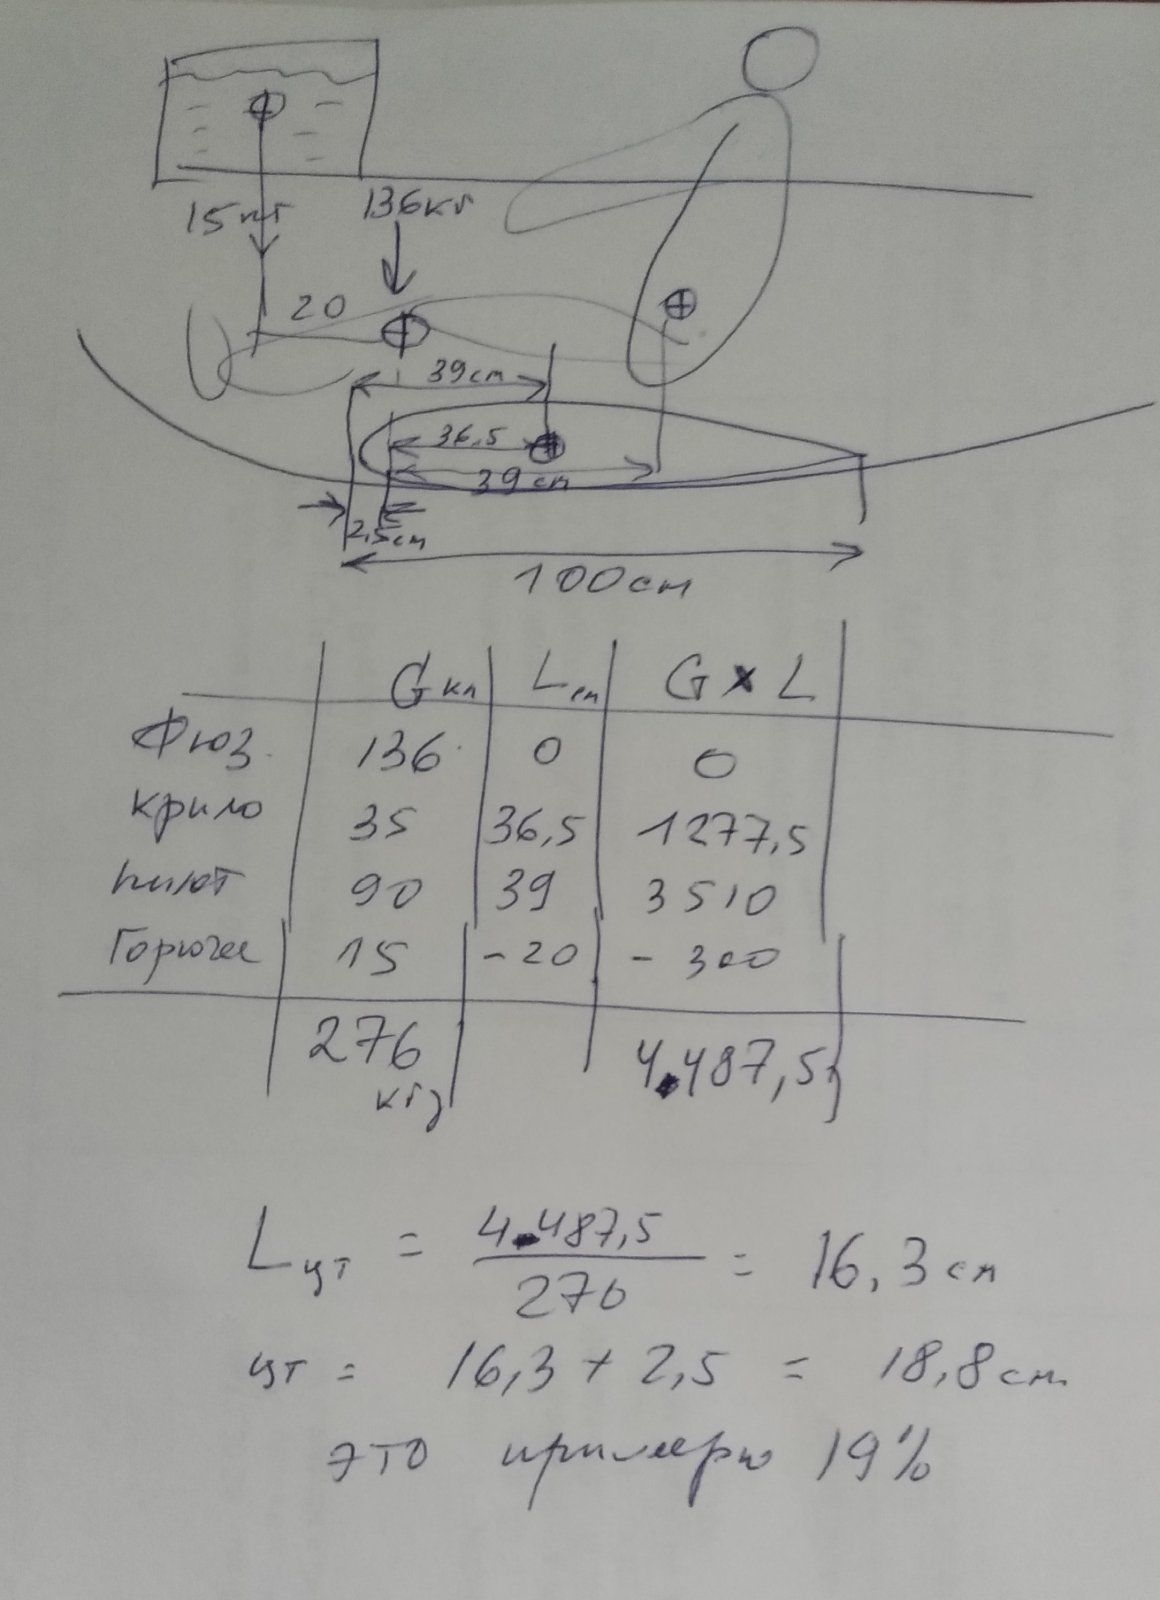 15 кг 136кг
20
39см
36,5
39см
2,5см
100см
G кг L см G x L
Фюз. 136 0 0
крило 35 36,5 1277,5
пилот 90 39 3510
Горючее 15 -20 - 300
276 4.487,5
кг
L цт = 4.487,5 / 276 = 16,3 см
цт = 16,3 + 2,5 = 18,8 см.
это примерно 19%